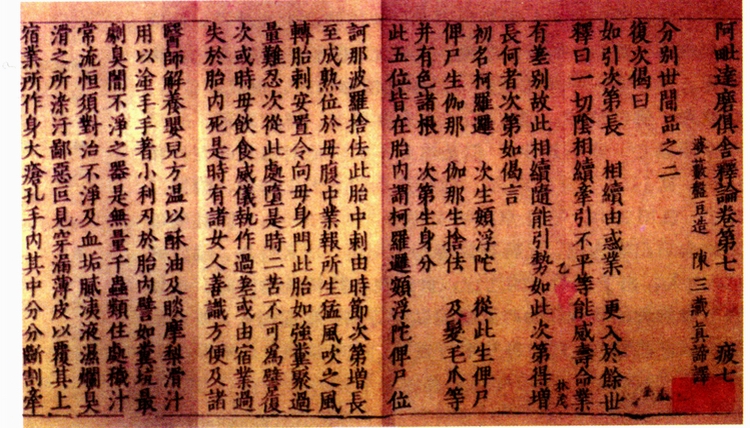 阿毗達磨俱舍釋論卷第七 疲七
婆藪盤豆造 陳三藏真諦譯
分別世間品之二
復次偈曰
如引次第長 相續由惑業 更入於餘世
釋曰一切陰相續牽引不平等能感壽命業
有差別故此相續隨能引勢如此次第得增
長何者次第如偈言
初名柯羅邏 次生頞浮陀 從此生俾尸
俾尸生伽那 伽那生捨佉 及髮毛爪等
并有色諸根 次第生身分
此五位皆在胎內謂柯羅邏頞浮陀俾尸位
訶那波羅捨佉此胎中刺由時節次第增長
至成熟位於母腹中業報所生猛風吹之風
轉胎刺安置令向母身門此胎如強糞聚過
量難忍次從此處墮是時二苦不可為譬復
次或時母飲食威儀執作過差或由宿業過
失於胎內死是時有諸女人善識方便及諸
醫師解養嬰兒方溫以酥油及睒摩梨滑汁
用以塗手手著小利刃於胎內譬如糞坑最
劇臭闇不淨之器是無量千蟲類住處穢汁
常流恒須對治不淨及血垢膩洟液濕爛臭
滑之所涂汙鄙惡叵見穿漏薄皮以覆其上
宿業所作身大瘡孔手內其中分分斷割牽
乙